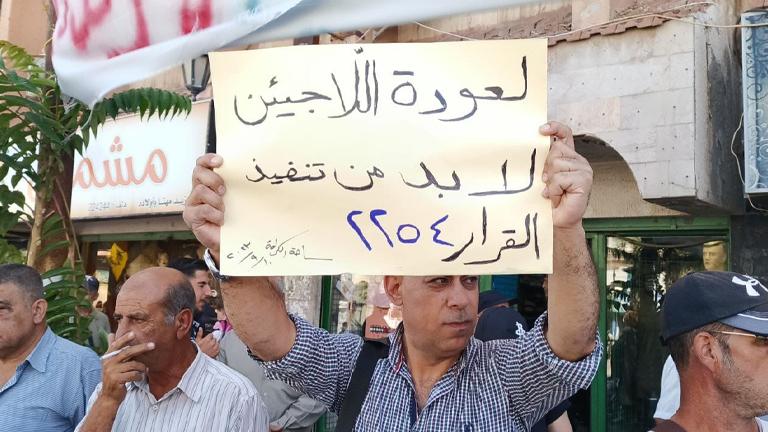 لعودة اللّاجيئن
لا بد من تنفيذ
القرار ٢٢٥٤
ساحة الكرامة
٢٠٢٣/٩/١٠
مشم